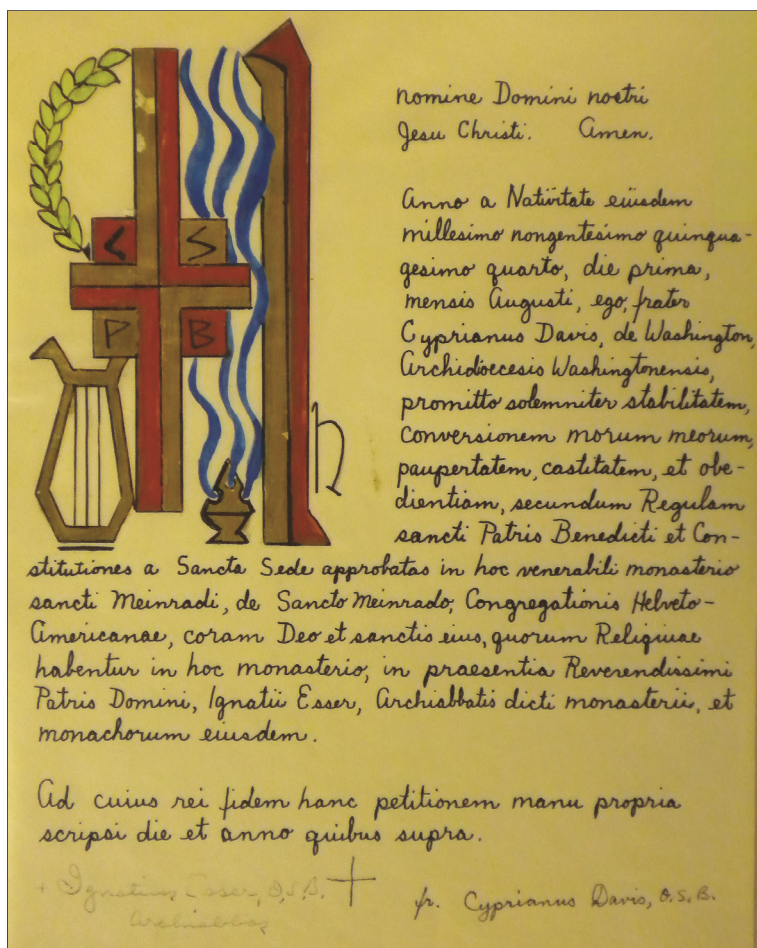 C S
P B
In
nomine Domini nostri
Jesu Christi. Amen.
Anno a Nativitate eiusdem
millesimo nongentesimo quinqua-
gesimo quarto, die prima,
mensis Augusti, ego, frater
Cyprianus Davis, de Washington,
Archidioecesis Washingtonensis,
promitto solemniter stabilitatem,
conversionem morum meorum,
paupertatem, castitatem, et obe-
dientiam, secundum Regulam
sancti Patris Benedicti et Con-
stitutiones a Sancta Sede approbatas in hoc venerabili monasterio
sancti Meinradi, de Sancto Meinrado, Congregationis Helveto-
Americanae, coram Deo et sanctis eius, quorum Reliquiae
habentur in hoc monasterio, in praesentia Reverendissimi
Patris Domini, Ignatii Esser, Archiabbatis dicti monasterii, et
monachorum eiusdem.
Ad cuius rei fidem hanc petitionem manu propria
scripsi die et anno quibus supra.
+ Ignatius Esser, O.S.B.
Archiabbas
fr. Cyprianus Davis, O.S.B.